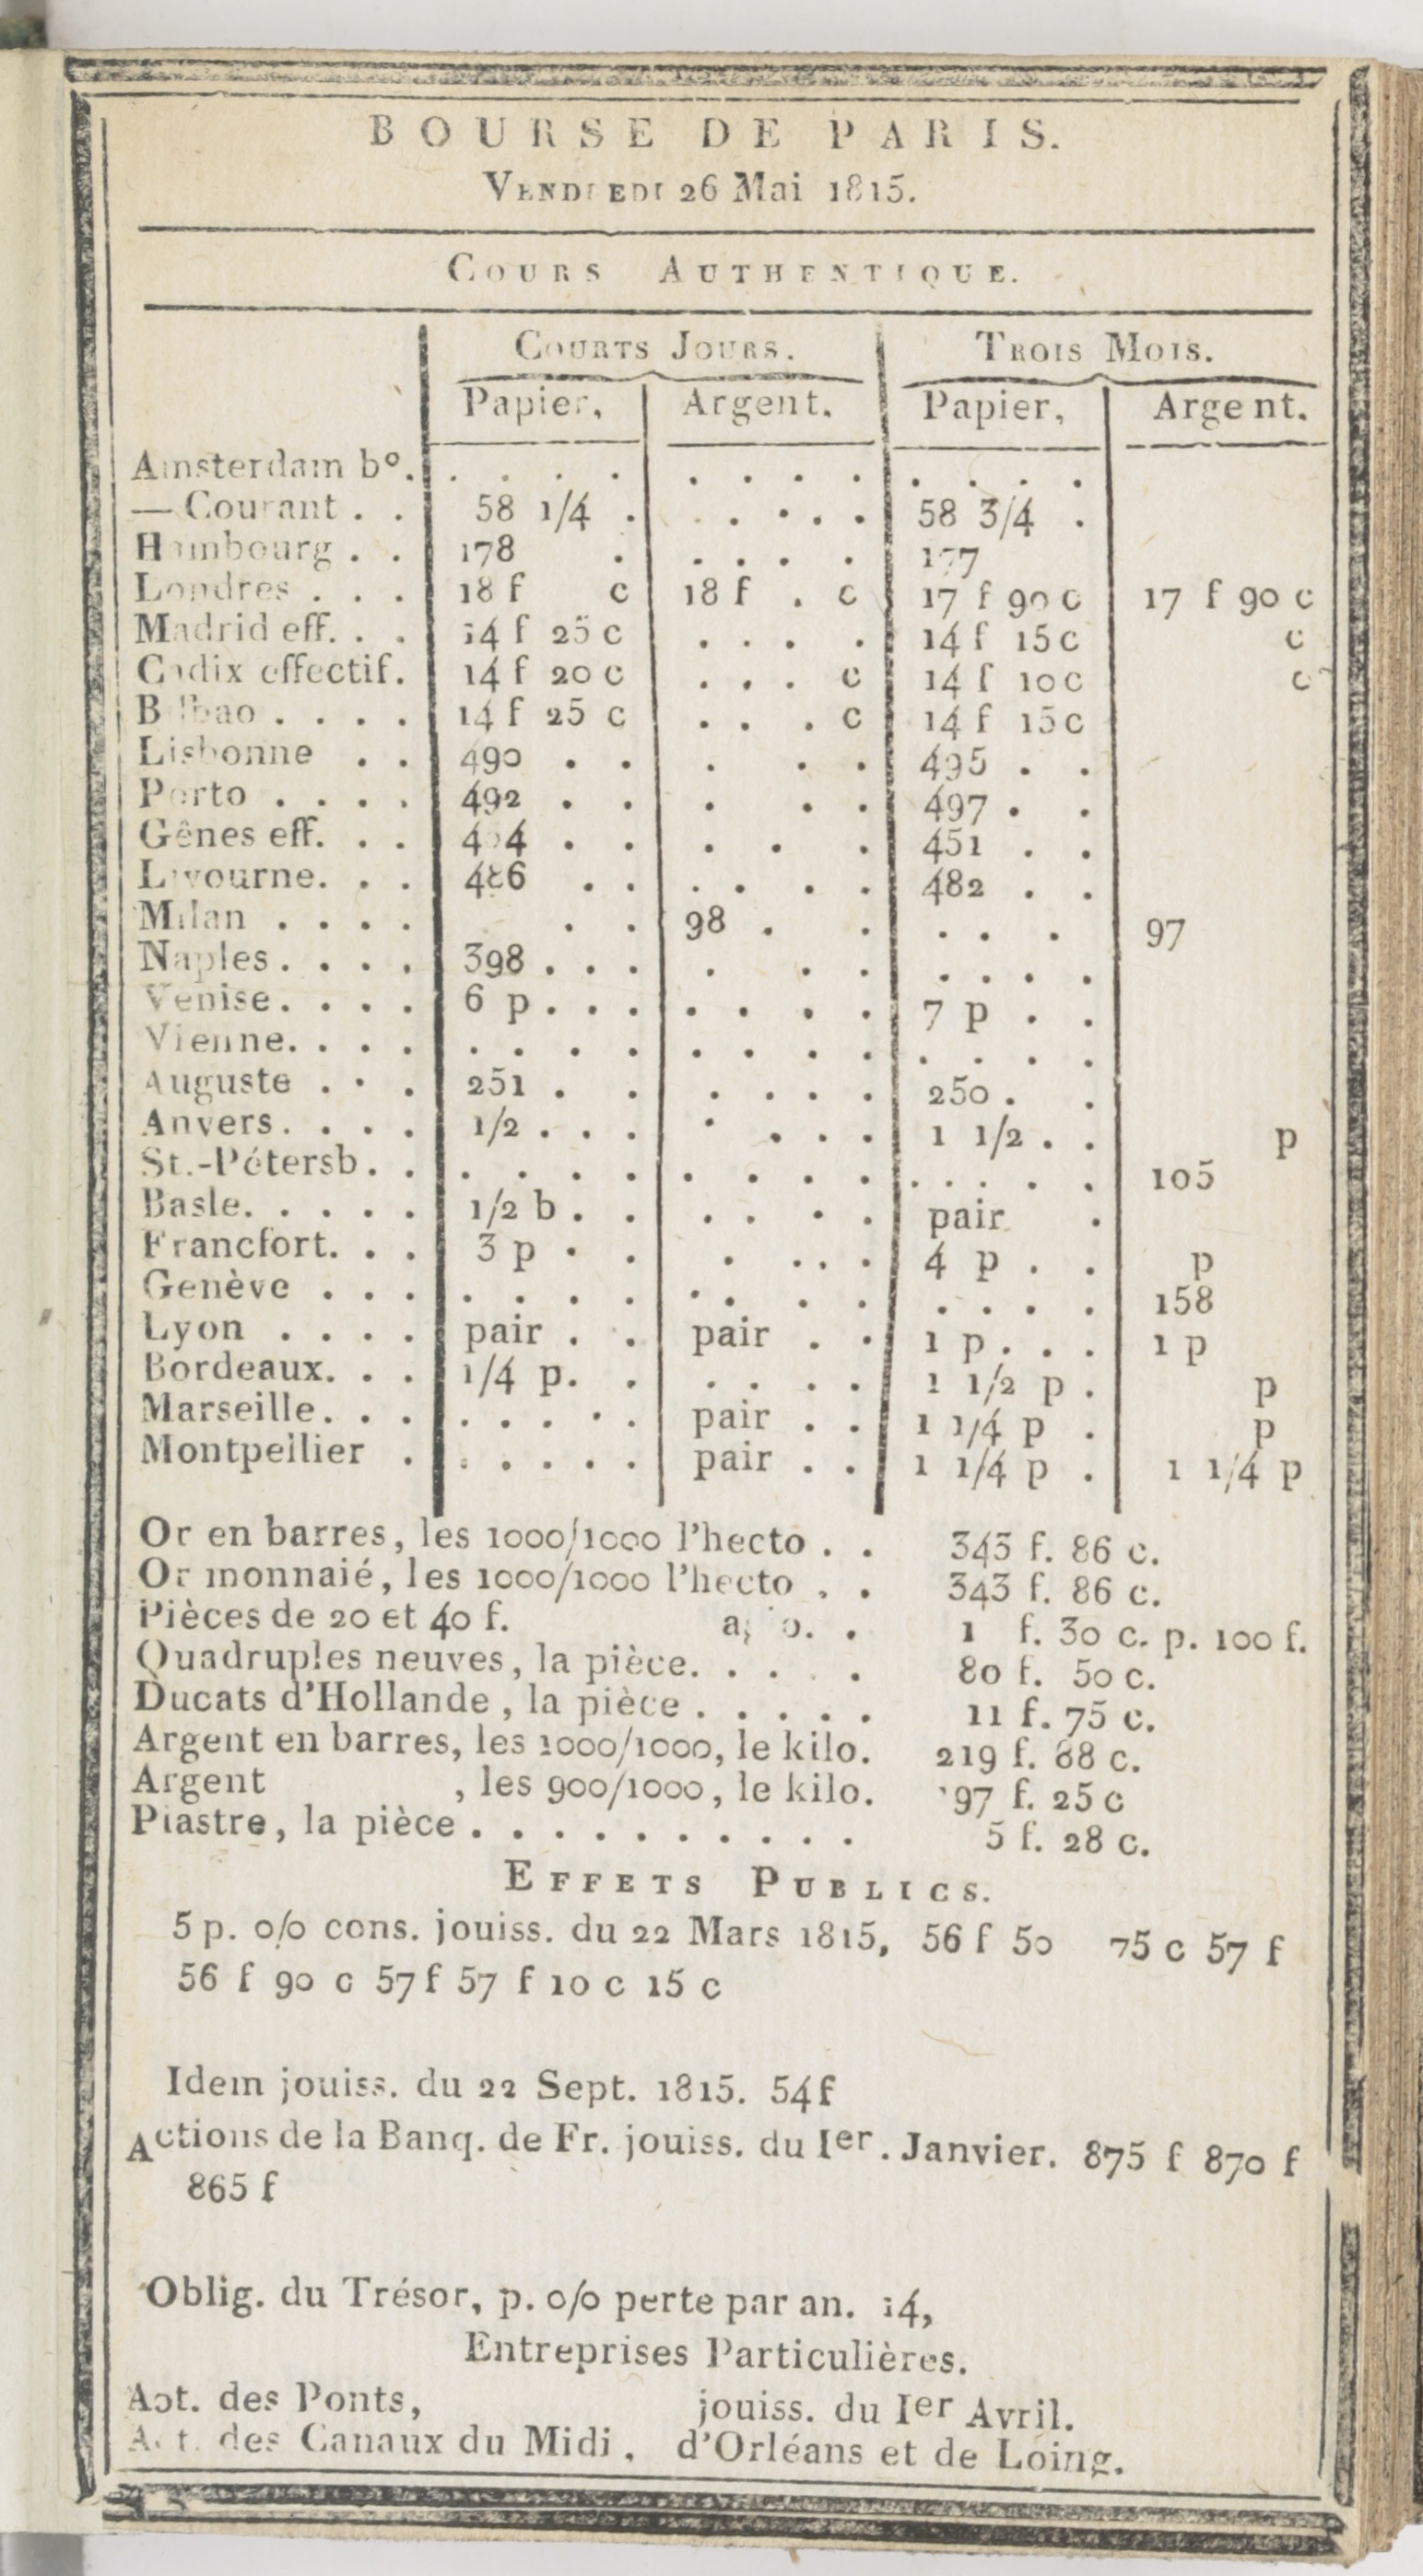 BOURSE DE PARIS.
VENDREDI 26 Mai 1815.
COURS AUTHENTIQUE.
COURTS JOURS. TROIS MOIS.
Papier, Argent. Papier, Argent.
Amsterdam bo. . . . . . . . . . . . .
— Courant . . 58 1/4 . . . . . . 58 3/4 .
Hambourg . . 178 . . . . . 177
Londres . . . 18 f c 18 f . c 17 f 90 c 17 f 90 c
Madrid eff. . . 14 f 25 c . . . . 14 f 15 c c
Cadix effectif. 14 f 20 c . . . c 14 f 10 c c
Bilbao . . . . 14 f 25 c . . . c 14 f 15 c
Lisbonne . . 490 . . . . . 495 . .
Porto . . . . 492 . . . . . 497 . .
Gênes eff. . . 4 4 . . . . . 451 . .
Livourne. . . 486 . . . . . . 482 . .
Milan . . . . . . 98 . . . . . 97
Naples. . . . 398 . . . . . . . . . .
Venise. . . . 6 p . . . . . . . 7 p . .
Vienne. . . . . . . . . . . . . . . .
Auguste . . . 251 . . . . . . 250 . .
Anvers. . . . 1/2 . . . . . . . 1 1/2 . . p
St.-Pétersb. . . . . . . . . . . . . . . 105
Basle. . . . . 1/2 b . . . . . . pair .
Francfort. . . 3 p . . . . . . 4 p . . p
Genève . . . . . . . . . . . . . . . 158
Lyon . . . . pair . . pair . . 1 p . . . 1 p
Bordeaux. . . 1/4 p. . . . . . 1 1/2 p . p
Marseille. . . . . . . . pair . . 1 1/4 p . p
Montpellier . . . . . . pair . . 1 1/4 p . 1 1/4 p
Or en barres, les 1000/1000 l'hecto . . 343 f. 86 c.
Or monnaié, les 1000/1000 l'hecto . . 343 f. 86 c.
Pièces de 20 et 40 f. . 1 f. 30 c. p. 100 f.
Quadruples neuves, la pièce. . . . . 80 f. 50 c.
Ducats d'Hollande, la pièce . . . . . 11 f. 75 c.
Argent en barres, les 1000/1000, le kilo. 219 f. 88 c.
Argent , les 900/1000, le kilo. 97 f. 25 c
Piastre, la pièce . . . . . . . . . . 5 f. 28 c.
EFFETS PUBLICS.
5 p. o/o cons. jouiss. du 22 Mars 1815, 56 f 50 75 c 57 f
56 f 90 c 57 f 57 f 10 c 15 c
Idem jouiss. du 22 Sept. 1815. 54 f
Actions de la Banq. de Fr. jouiss. du Ier. Janvier. 875 f 870 f
865 f
Oblig. du Trésor, p. o/o perte par an. 14,
Entreprises Particulières.
Act. des Ponts, jouiss. du Ier Avril.
Act. des Canaux du Midi, d'Orléans et de Loing.